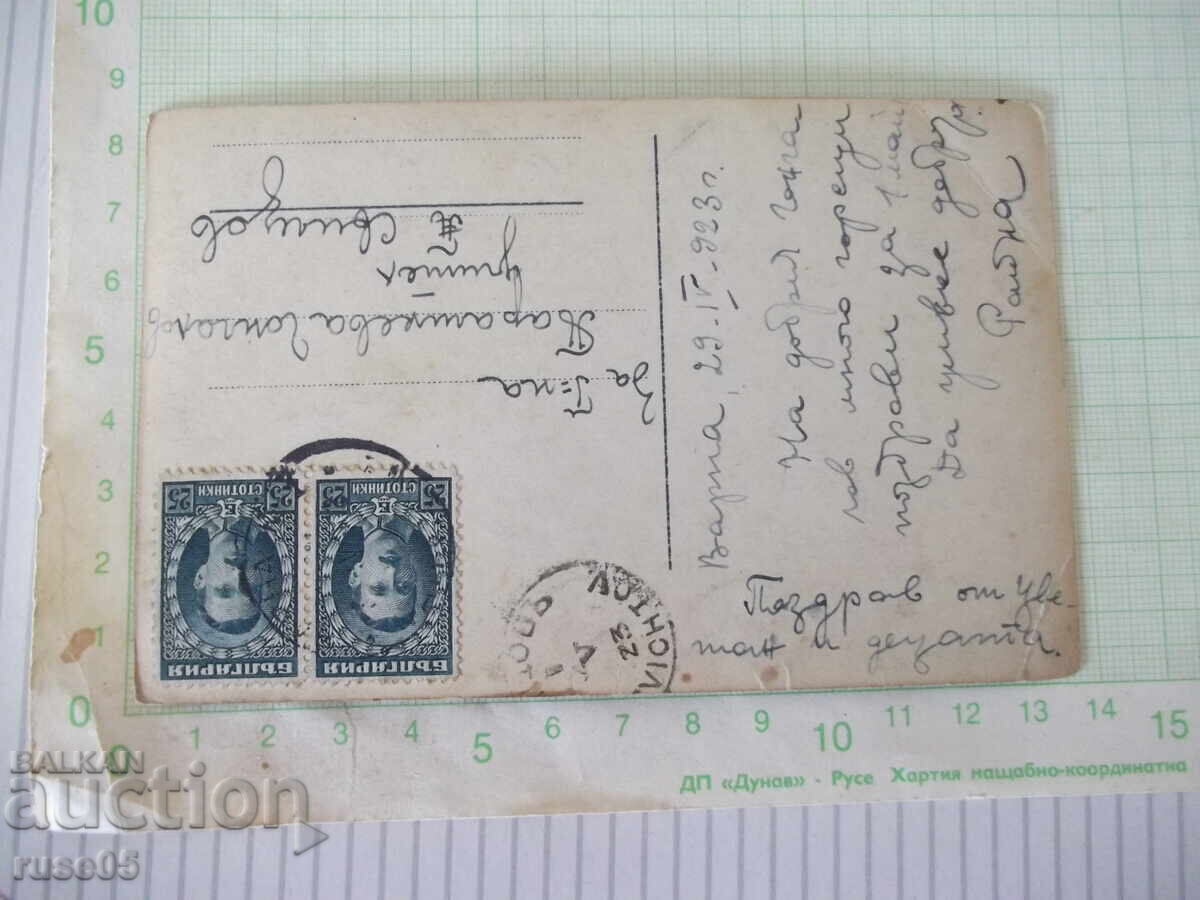 За Г=ца
Парашкева
учител
Свищов
Варна, 29-IV-923 г.
На добрия
много горещи
поздрави за 1 май
Да цивее добруя.
Райна
Поздрав от Цве-
тан и децата.
БЪЛГАРИЯ
25 25
СТОТИНКИ
БЪЛГАРИЯ
25 25
СТОТИНКИ
VICHTOV
23
V
10
9
8
7
6
5
4
3
2
1
0
0 1 2 3 4 5 6 7 8 9 10 11 12 13 14 15
ДП «Дунав» - Русе Хартия нащабно-координатна
BALKAN
auction
ruse05